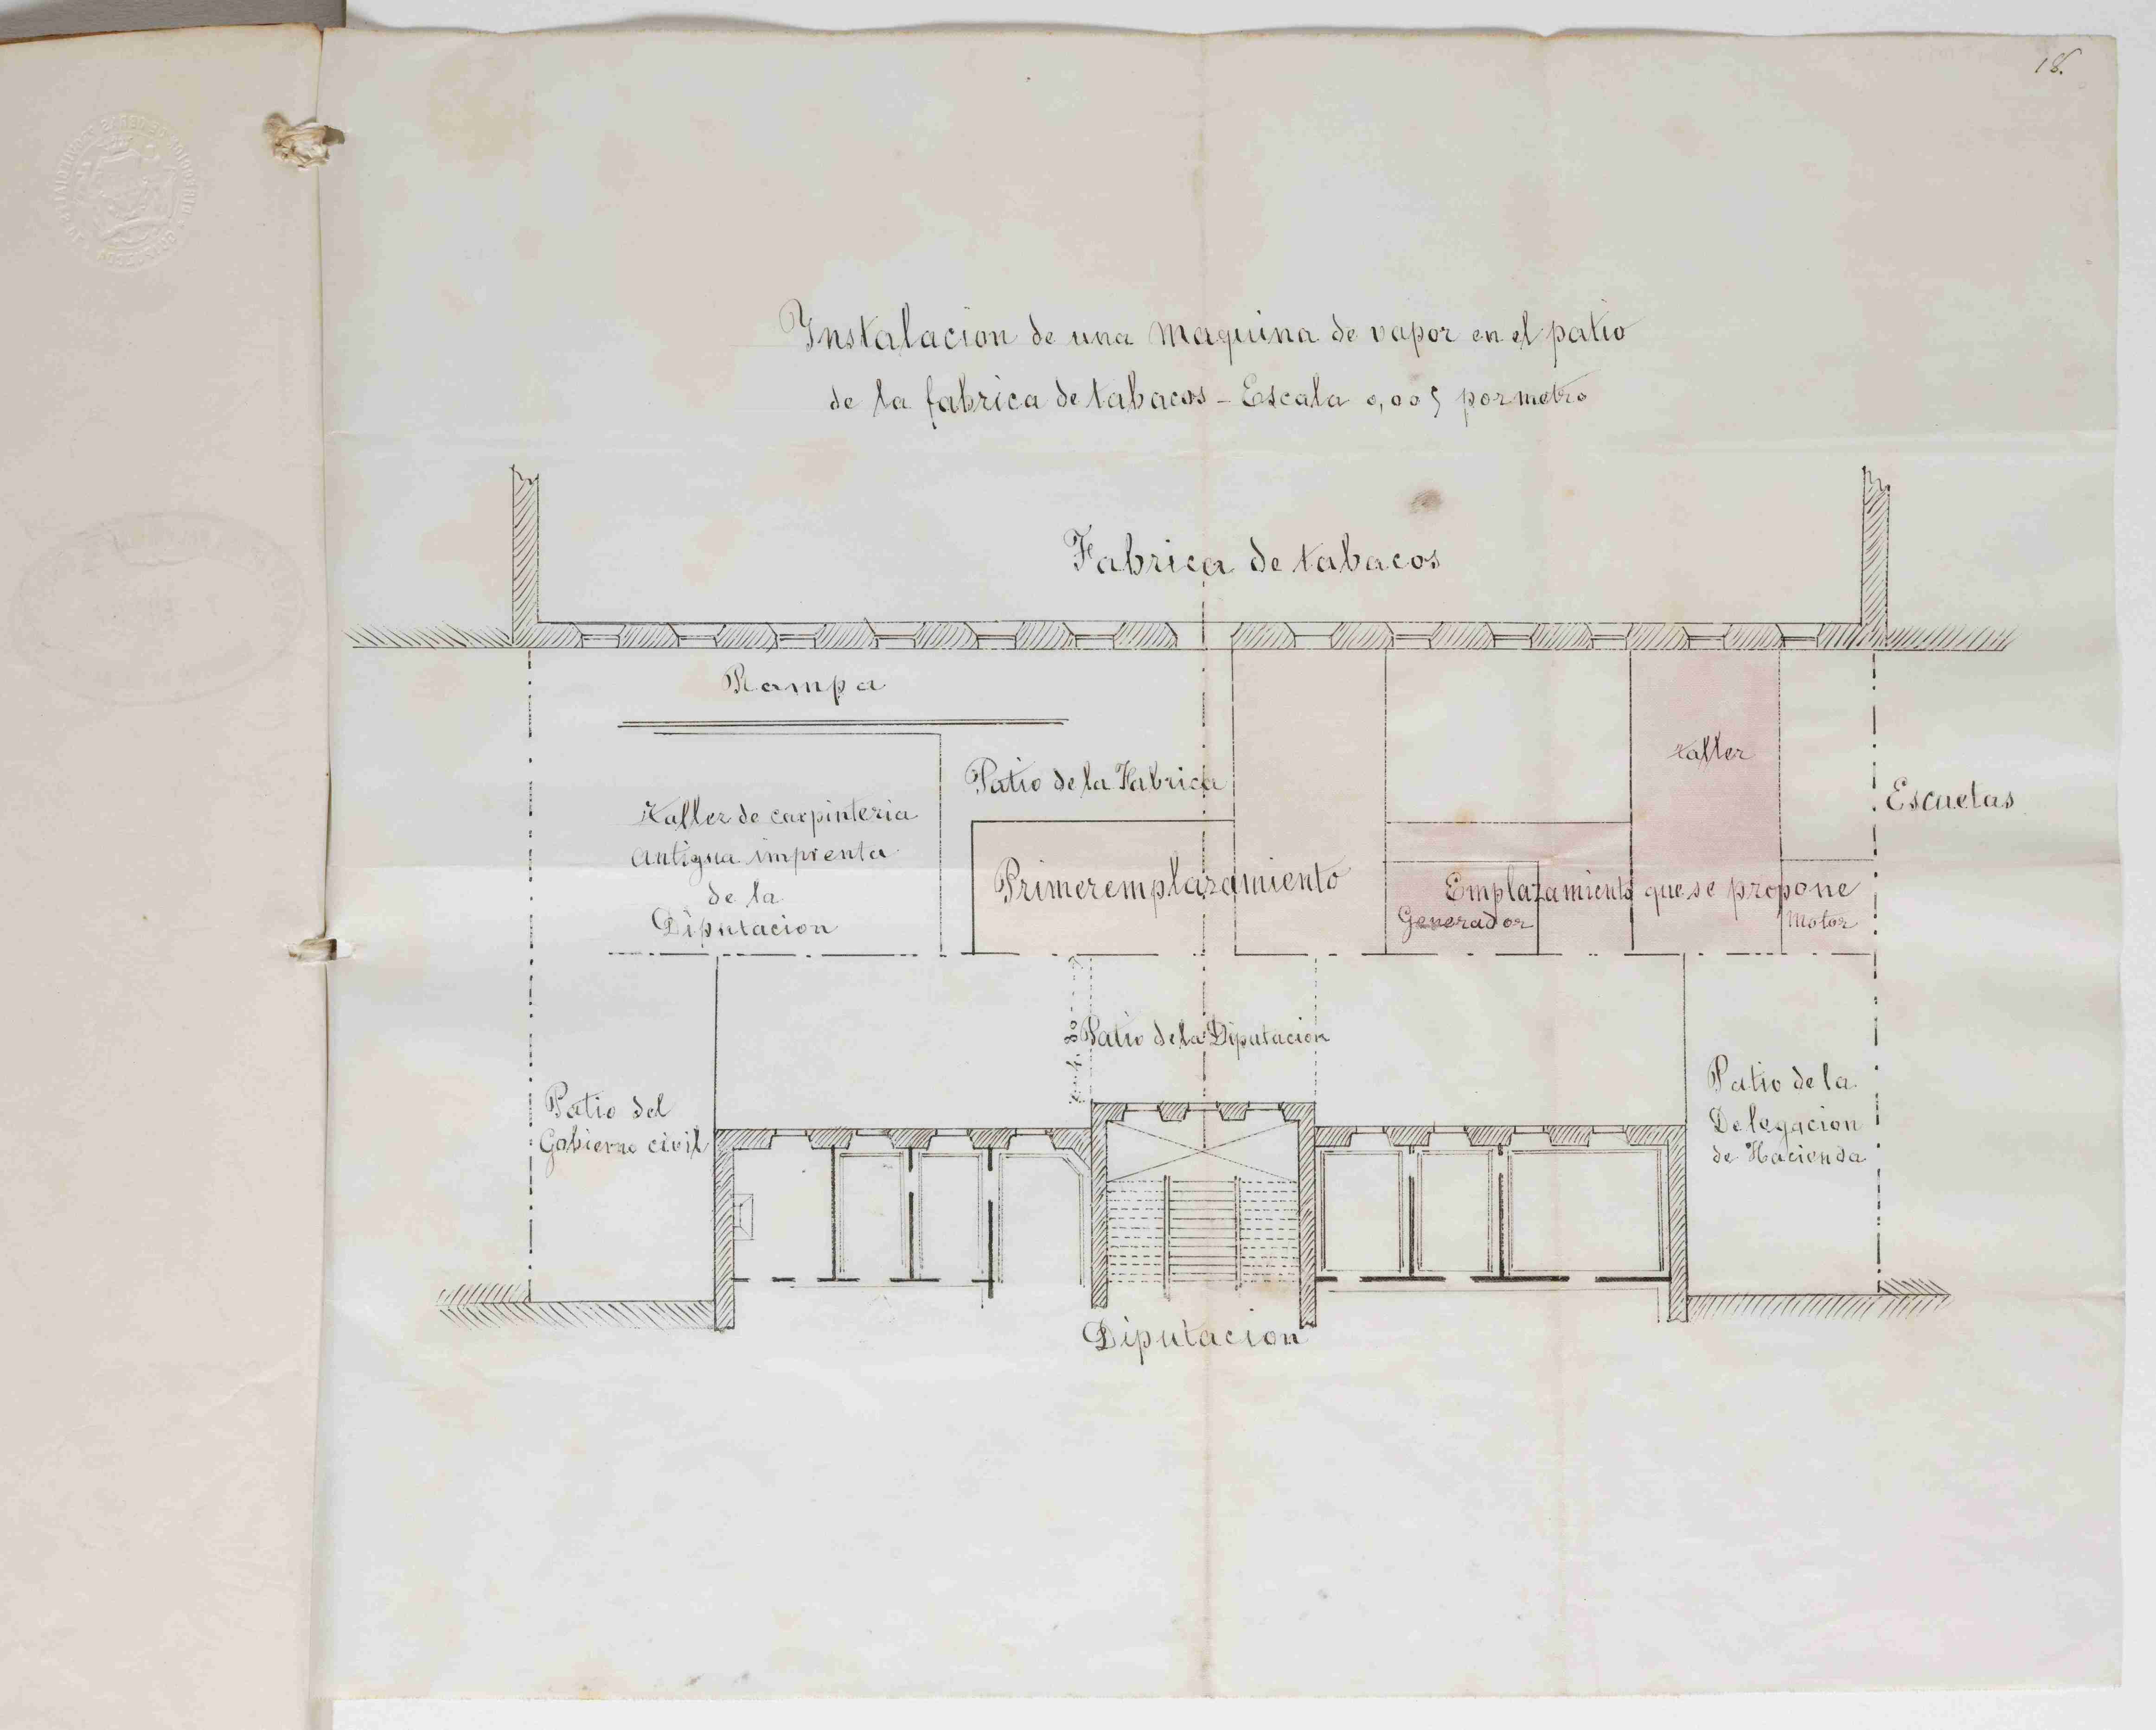 18.
Instalacion de una maquina de vapor en el patio
de la fabrica de tabacos - Escala 0,005 por metro
Fabrica de tabacos
Rampa
taller
Patio de la Fabrica
Escuelas
Taller de carpinteria
Antigua imprenta
de la
Diputacion
Primer emplazamiento
Emplazamiento que se propone
Generador
Motor
Patio de la Diputacion
Patio de la
Delegacion
de Hacienda
Patio del
Gobierno civil
Diputacion